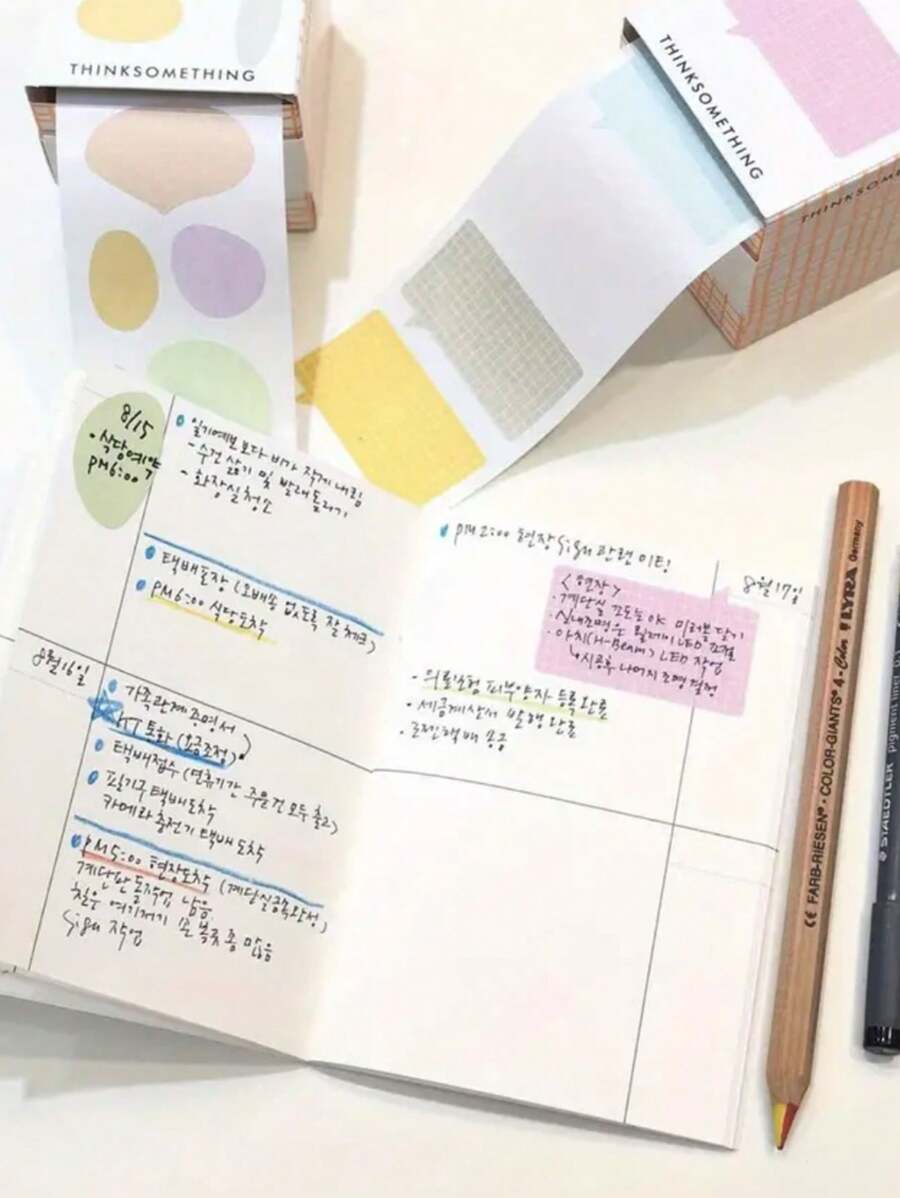 THINKSOMETHING
THINKSOMETHING
THINKSOME
8/15
- 식당예약
PM6:00
일기예보보다 비가 작게 내림
- 수건 삶기 및 빨래 돌리기
- 화장실청소
택배포장 (오배송 없도록 잘 체크)
PM6:00 식당도착
8월16일
가족관계증명서
KT 통화 (요금조정)
택배접수 (연휴기간 주문건 모두 출고)
필기구 택배도착
카메라 충전기 택배 도착
PM5:00 현장도착 (계단실금속완성)
계단판 도장작업 남음
철부 여기저기 손 볼곳 좀 많음
Sign 작업
PM 2:00 현장 Sign 관련 미팅
8월17일
<현장>
· 계단실 미러볼 달기
· 실내조명은 LED
· 아치(H-Beam) LED 작업
↳ 시공후 나머지 조명 결정
- 의료보험 피부양자 등록완료
· 세금계산서 발행 완료
택배 송금
CE FARB-RIESEN® · COLOR-GIANTS® 4 - Color LYRA Germany
STAEDTLER pigment liner 0.